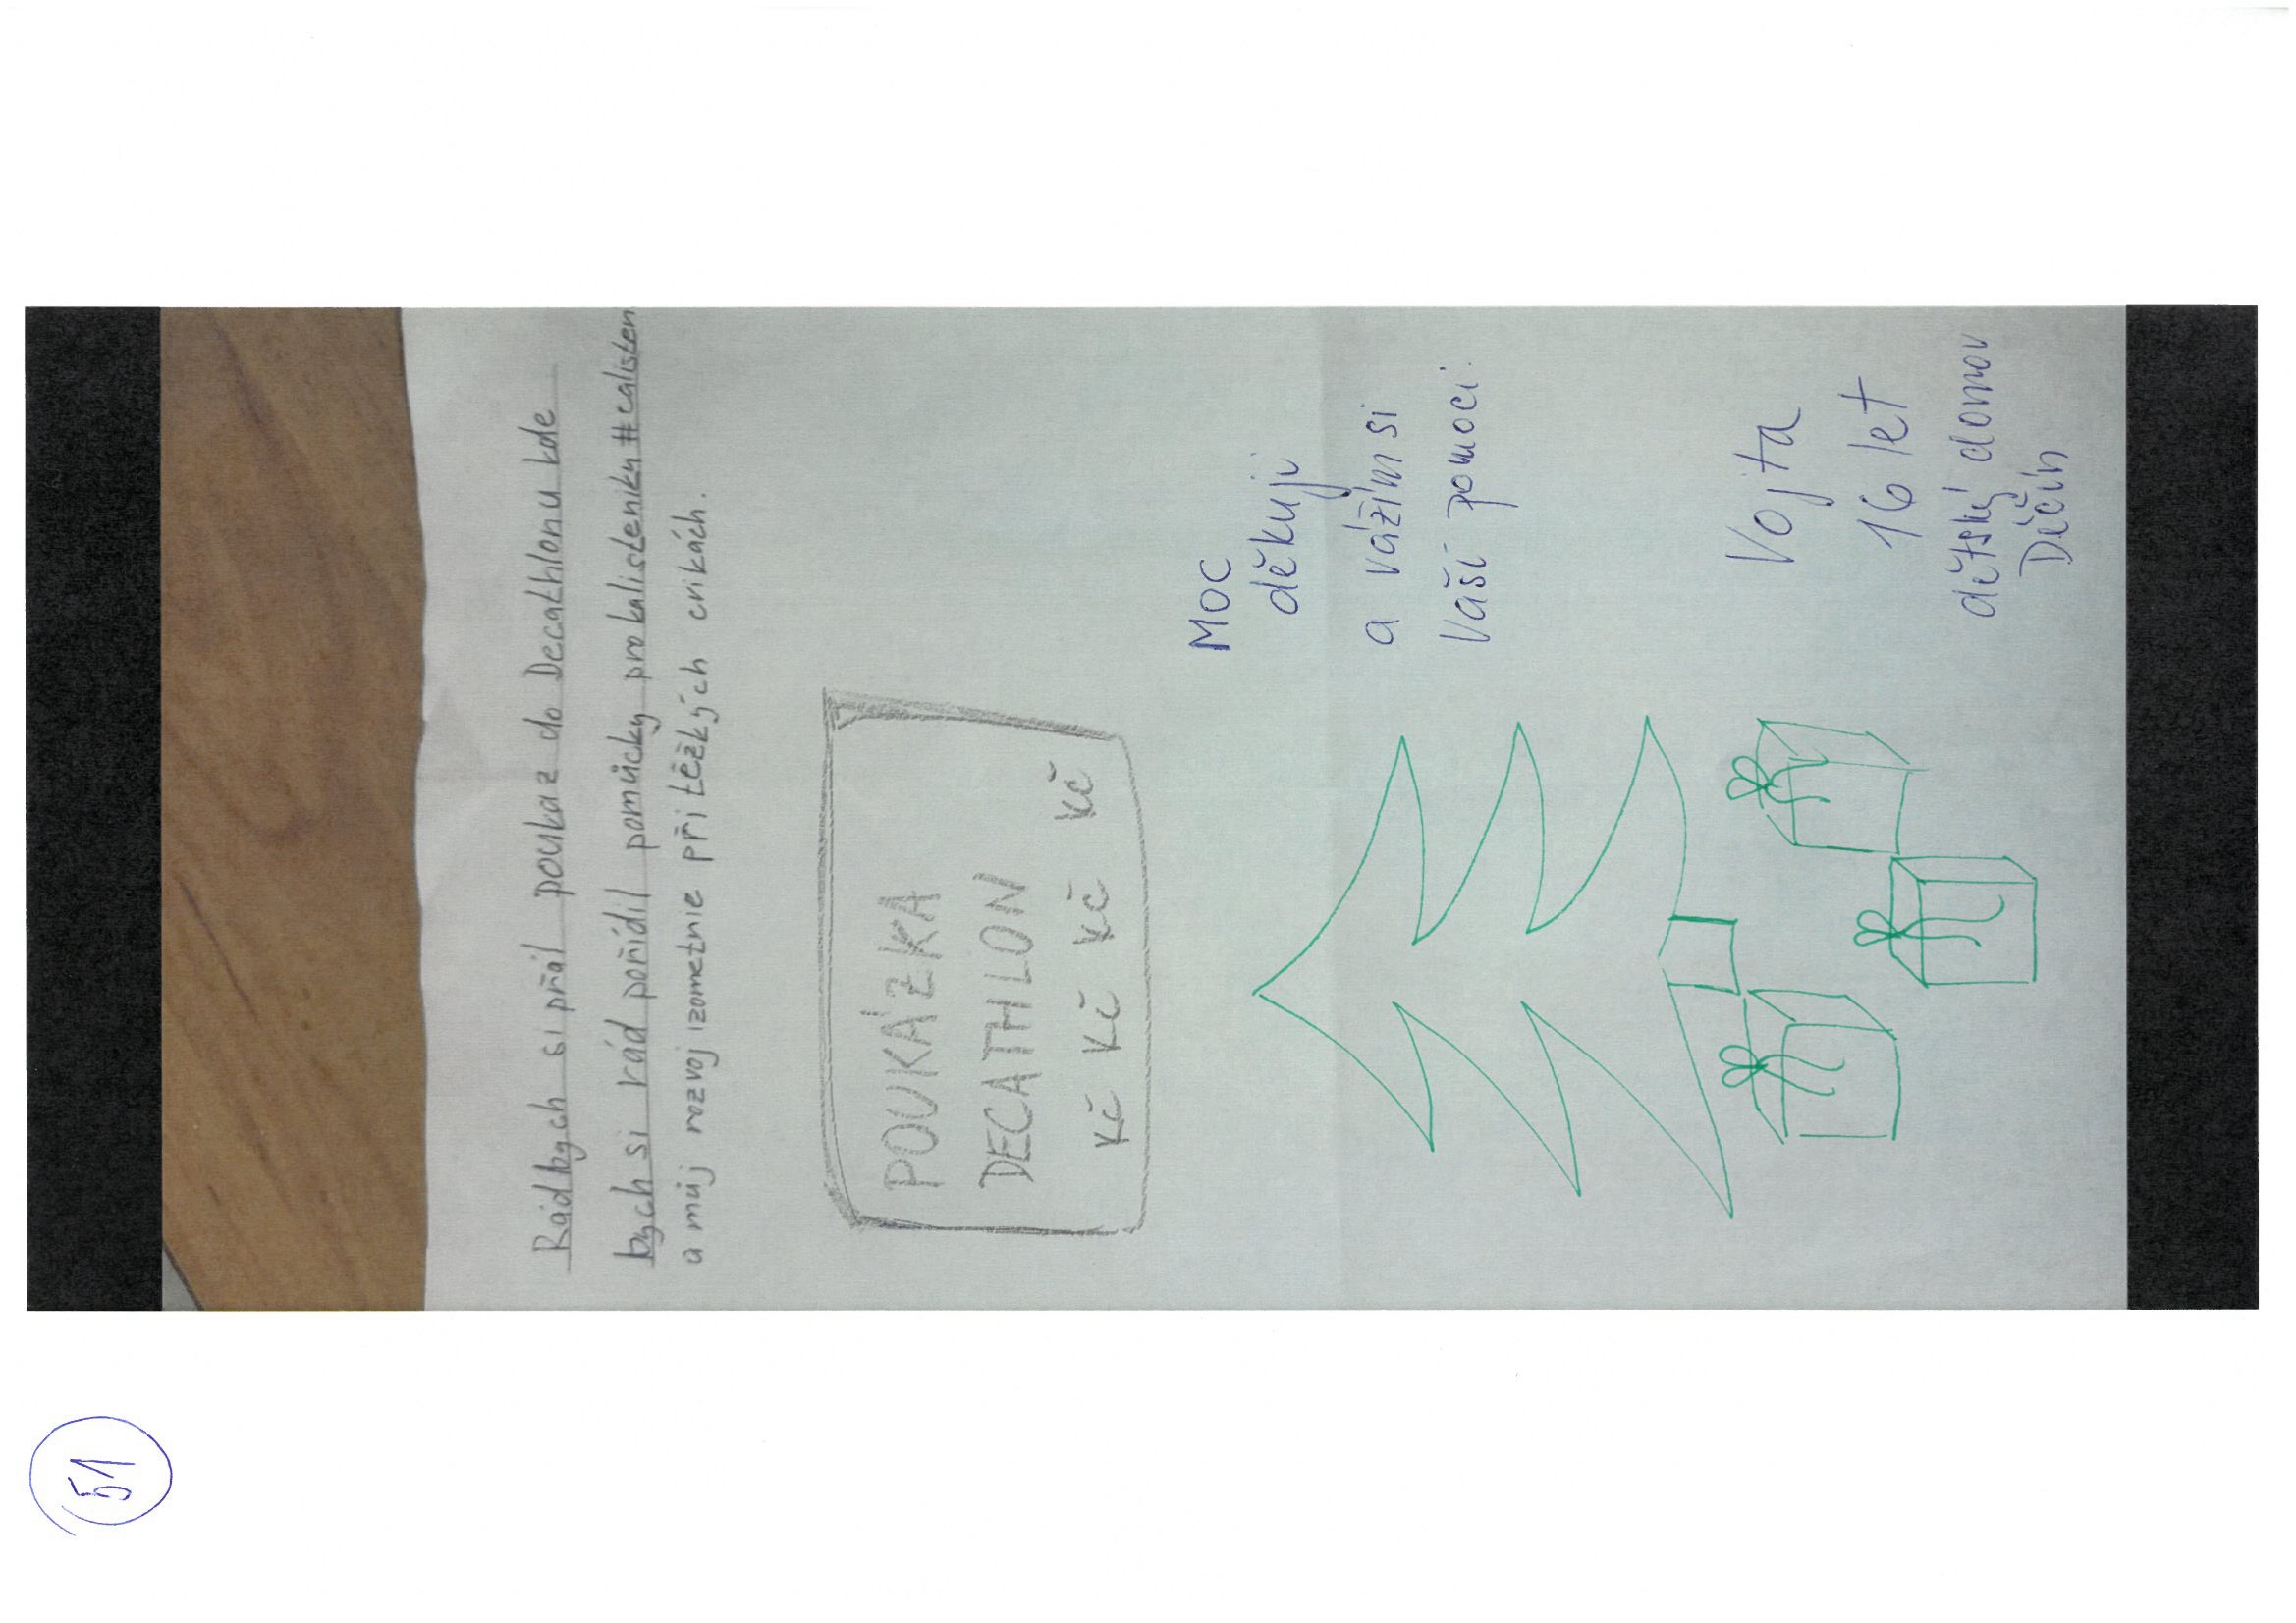 Rád bych si přál poukaz do Decathlonu kde
bych si rád pořídil pomůcky pro kalisteniku #calisten
a můj rozvoj izometrie při těžkých cvikách.
POUKÁZKA
DECATHLON
Kč Kč Kč Kč
MOC
děkuji
a vážím si
Vaší pomoci.
Vojta
16 let
dětský domov
Děčín
51